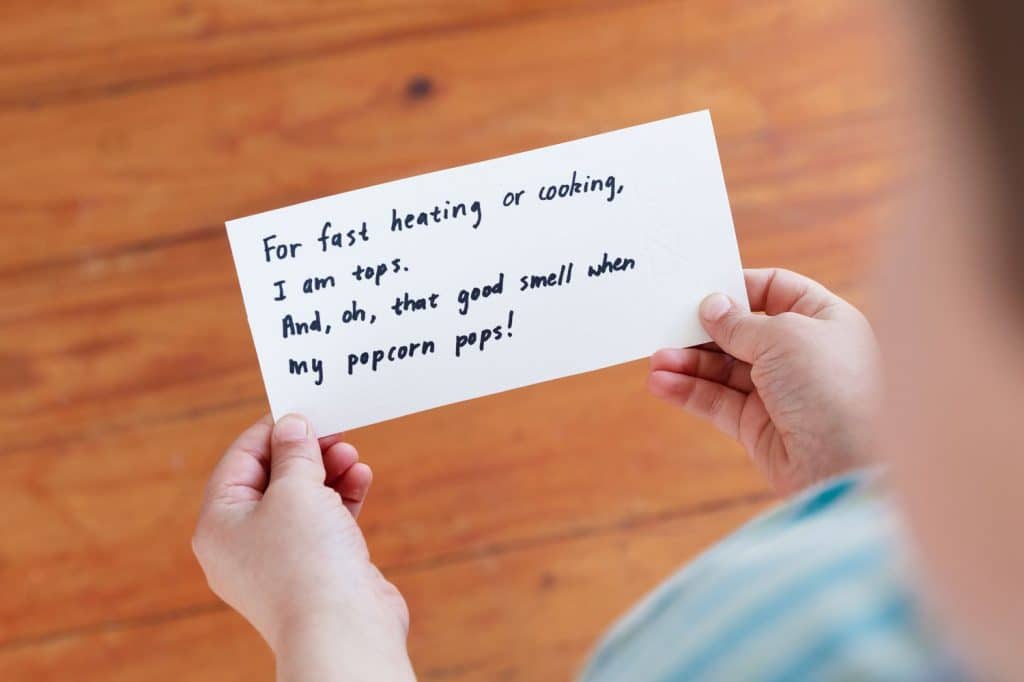 For fast heating or cooking,
I am tops.
And, oh, that good smell when
my popcorn pops!